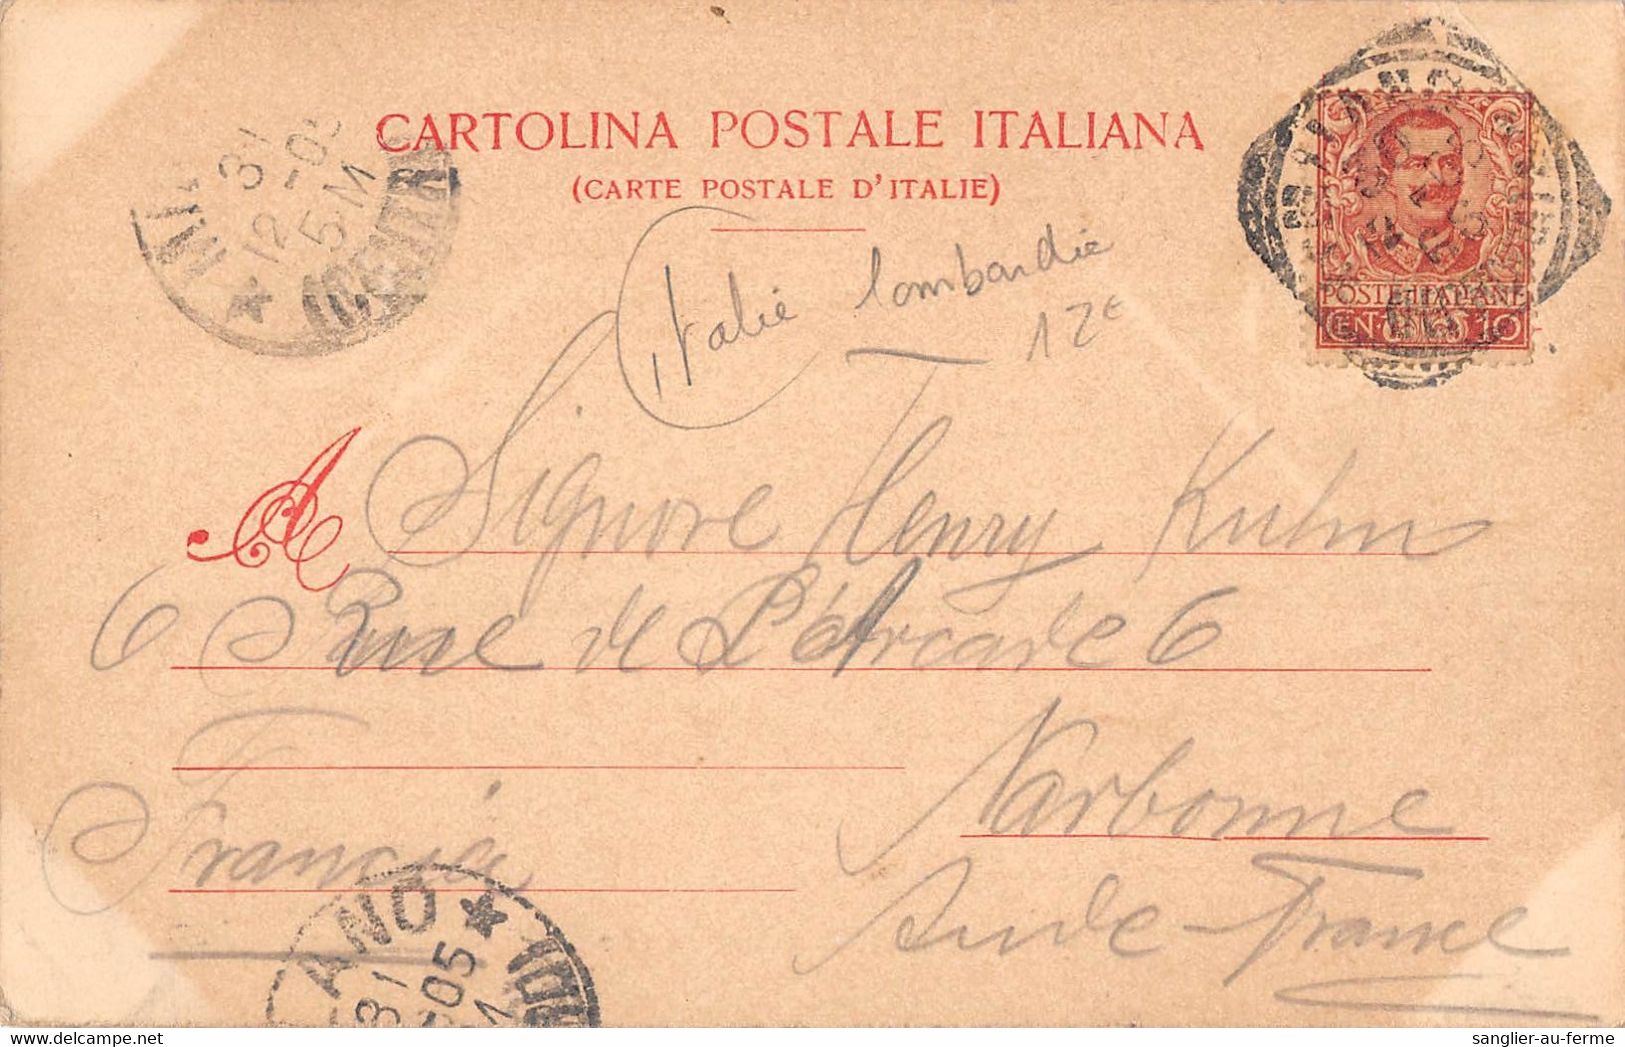 CARTOLINA POSTALE ITALIANA
(CARTE POSTALE D'ITALIE)
31
12
5 M
POSTE ITALIANE
CENT 10
italie lombardie
12€
A Signore Henry Kuhn
6 Rue de L'été Arcade 6
Narbonne
Francia
Aude - France
ANO
31
05
sanglier-au-ferme